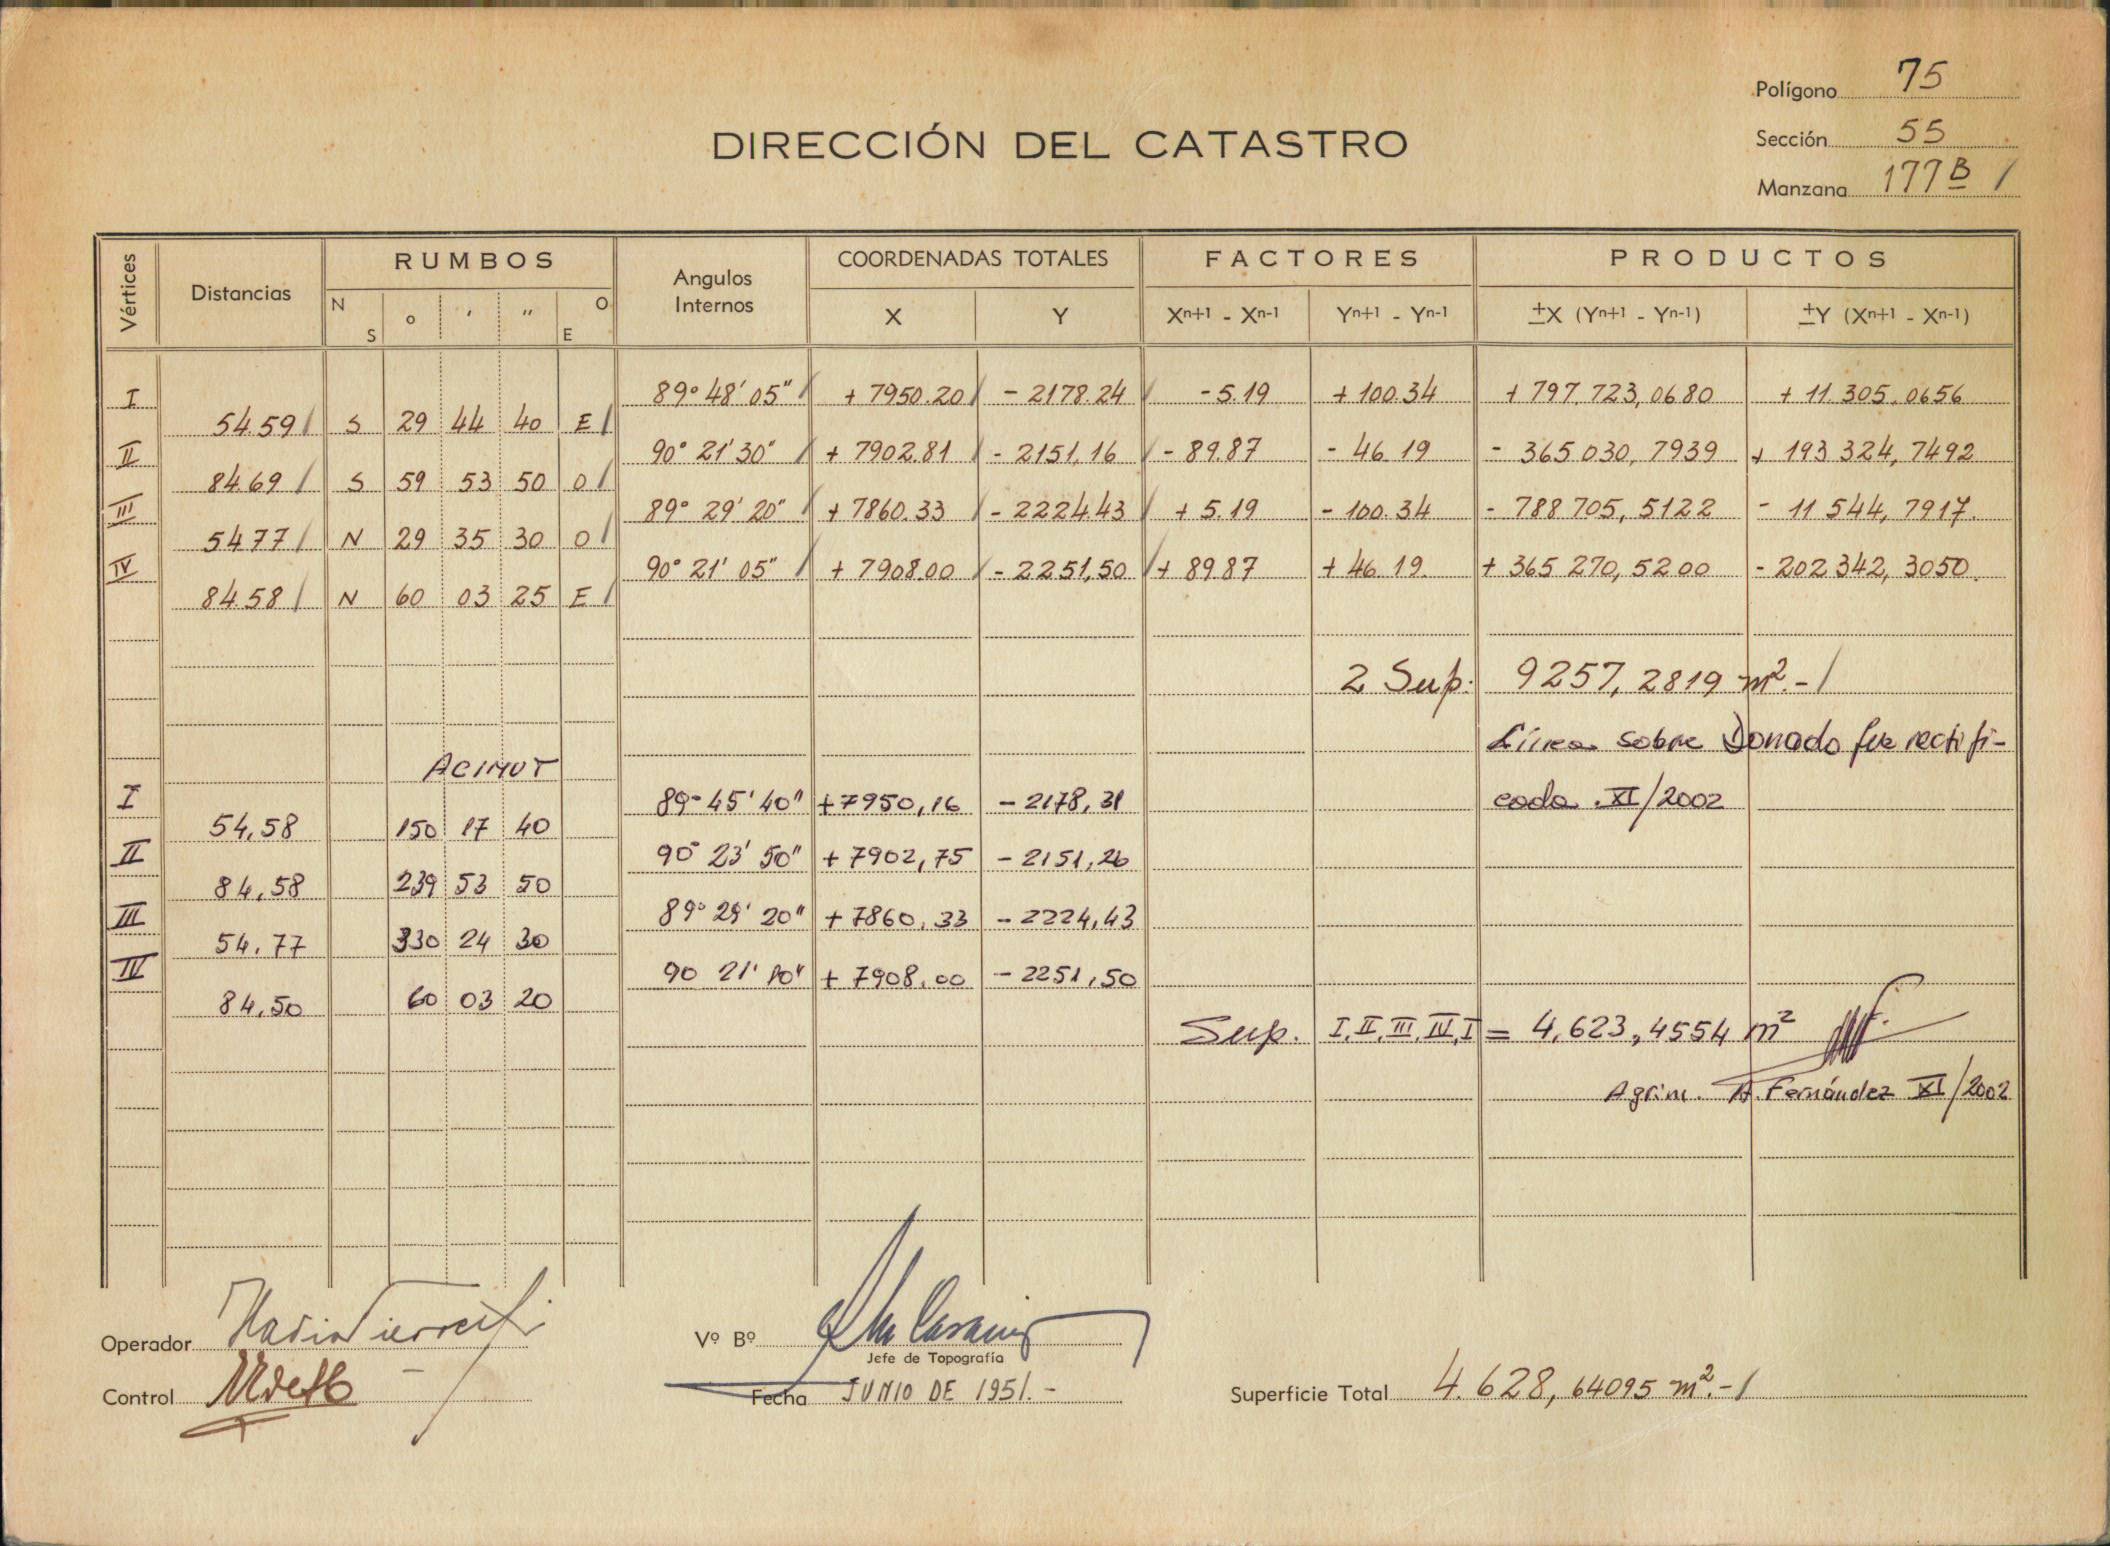 Polígono 75
DIRECCIÓN DEL CATASTRO
Sección 55
Manzana 177B /
Vértices Distancias RUMBOS Angulos Internos COORDENADAS TOTALES FACTORES PRODUCTOS
N S o ' " O E X Y Xn+1 - Xn-1 Yn+1 - Yn-1 ±X (Yn+1 - Yn-1) ±Y (Xn+1 - Xn-1)
I 89° 48' 05" / + 7950.20 / - 2178.24 / - 5.19 + 100.34 + 797.723,0680 + 11 305.0656
54.59 / S 29 44 40 E /
II 90° 21' 30" / + 7902.81 / - 2151,16 / - 89.87 - 46.19 - 365 030,7939 + 193 324,7492
84.69 / S 59 53 50 O /
III 89° 29' 20" / + 7860.33 / - 2224.43 / + 5.19 - 100.34 - 788 705,5122 - 11 544,7917.
54 77 / N 29 35 30 O /
IV 90° 21' 05" / + 7908.00 / - 2251,50 / + 89.87 + 46.19. + 365 270,5200 - 202 342,3050.
84.58 / N 60 03 25 E /
2 Sup. 9257,2819 m².- /
Línea sobre Donado fue rectifi-
ACIMUT
I 89° 45' 40" +7950,16 - 2178,31 cada .XI/2002
54,58 150 17 40
II 90° 23' 50" + 7902,75 - 2151,26
84,58 239 53 50
III 89° 29' 20" + 7860,33 - 2224,43
54,77 330 24 30
IV 90 21' 10" + 7908,00 - 2251,50
84,50 60 03 20
Sup. I.II.III.IV.I = 4,623,4554 m²
Agrim. A. Fernández XI/2002
Operador
Vº Bº
Jefe de Topografía
Control
Fecha JUNIO DE 1951.-
Superficie Total 4.628,64095 m².- /